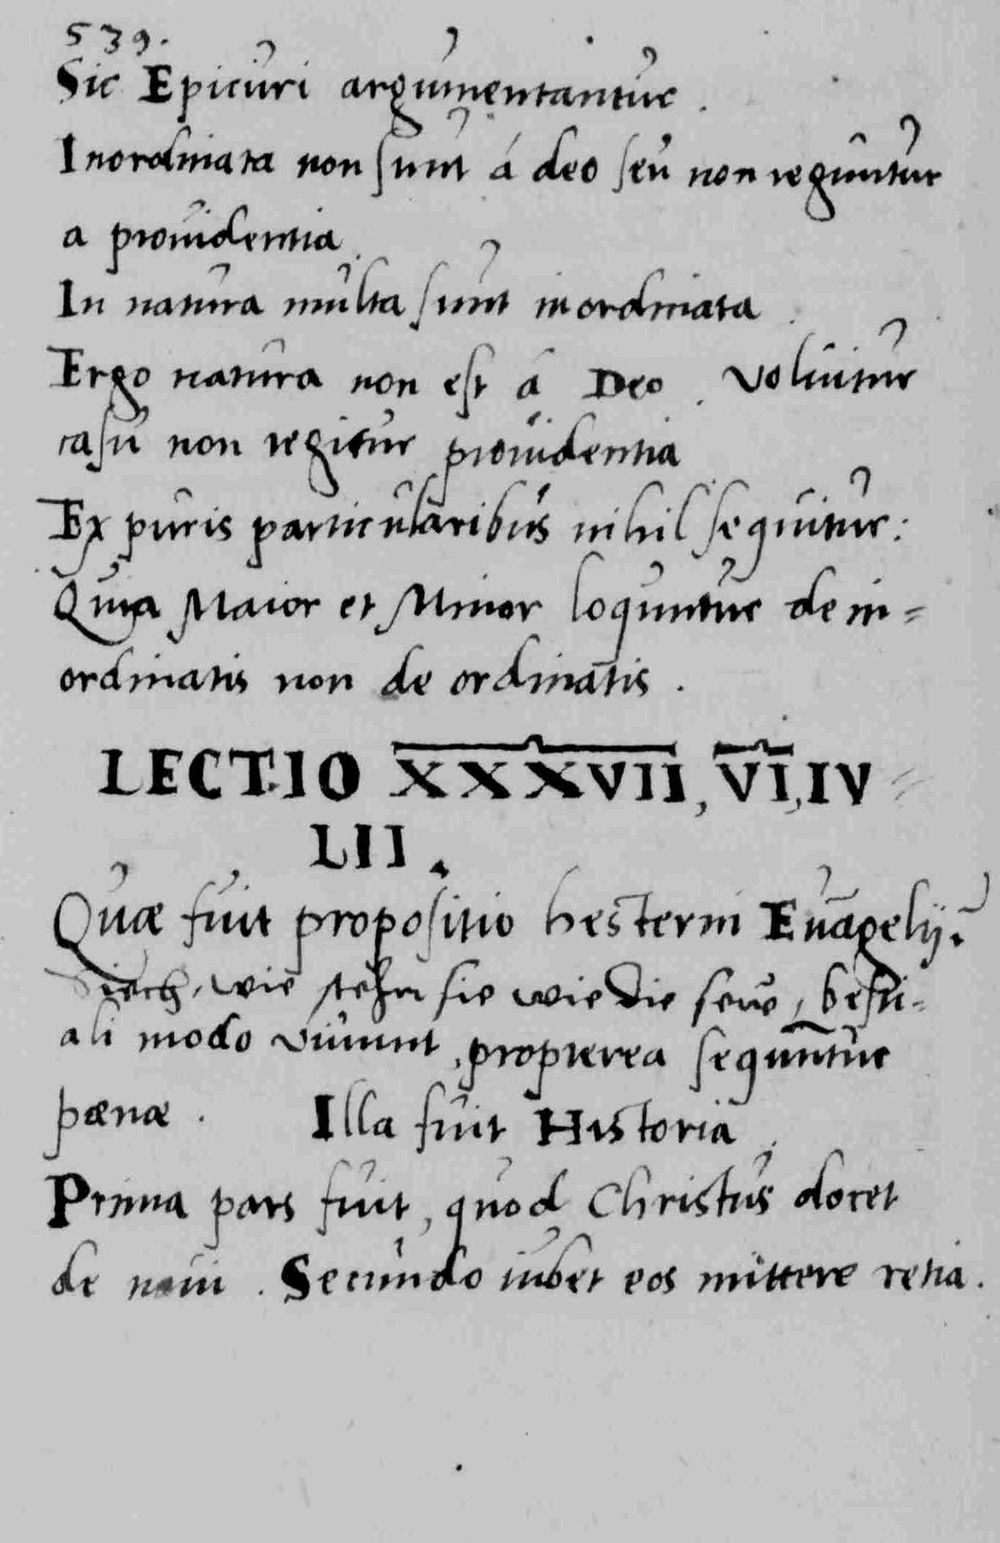 539.
Sic Epicuri argumentantur.
Inordinata non sunt á deo seu non reguntur
a prouidentia.
In natura multa sunt inordinata.
Ergo natura non est á Deo. Voluitur
casu non regitur prouidentia
Ex puris particularibus nihil sequitur:
Quia Maior et Minor loquntur de in=
ordinatis non de ordinatis.
LECTIO XXXVII, VI, IV=
LII.
Quæ fuit propositio hesterni Euāgelij?
wie stehn sie wie die sewe, besti=
ali modo viuunt, propterea sequntur
pænæ. Illa fuit Historia.
Prima pars fuit, quod Christus docet
de naui. Secundo iubet eos mittere retia.